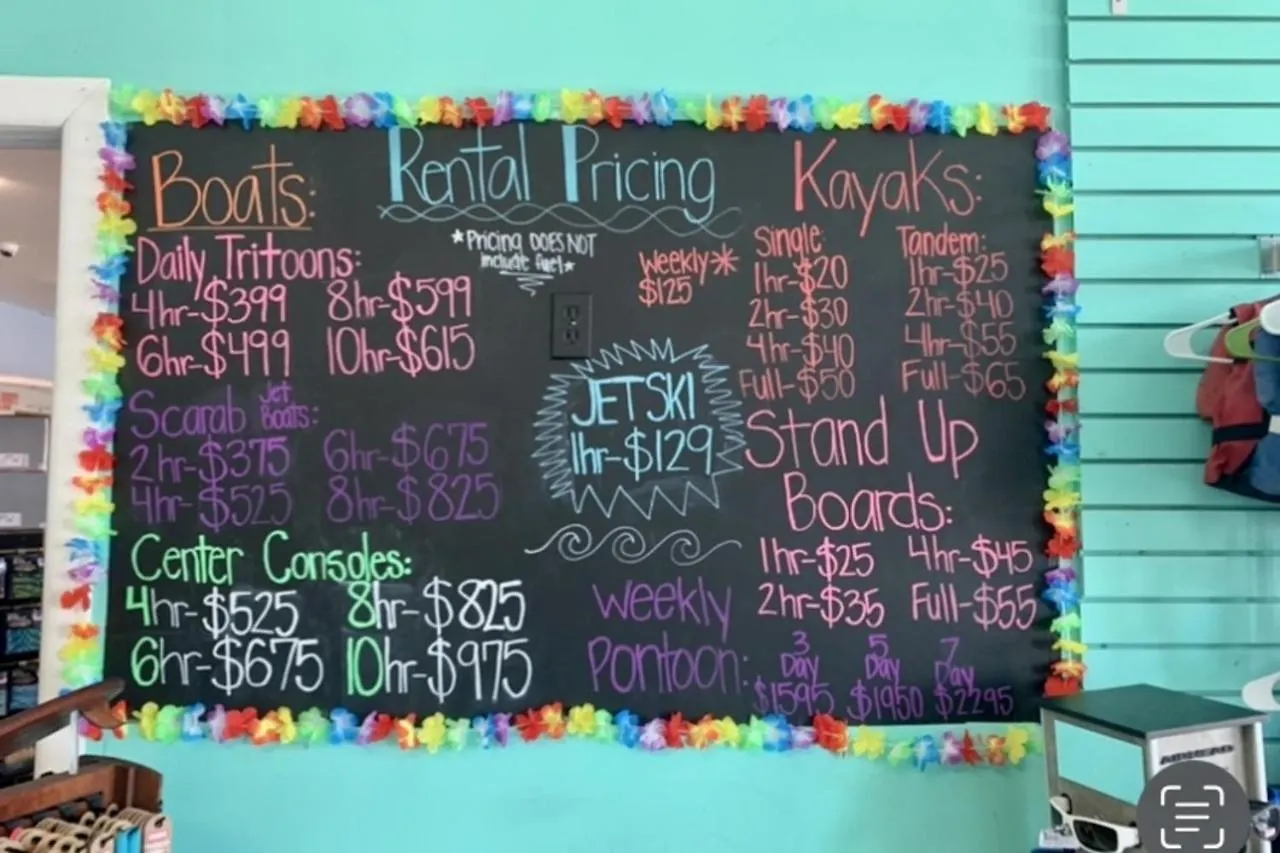 Rental Pricing
*Pricing DOES NOT
include fuel*
Boats:
Daily Tritoons:
4hr-$399 8hr-$599
6hr-$499 10hr-$615
Scarab Jet Boats:
2hr-$375 6hr-$675
4hr-$525 8hr-$825
Center Consoles:
4hr-$525 8hr-$825
6hr-$675 10hr-$975
JET SKI
1hr-$129
Kayaks:
Weekly*
$125
Single: Tandem:
1hr-$20 1hr-$25
2hr-$30 2hr-$40
4hr-$40 4hr-$55
Full-$50 Full-$65
Stand Up
Boards:
1hr-$25 4hr-$45
2hr-$35 Full-$55
Weekly
Pontoon:
3 Day 5 Day 7 Day
$1595 $1950 $2295
AIRHEAD